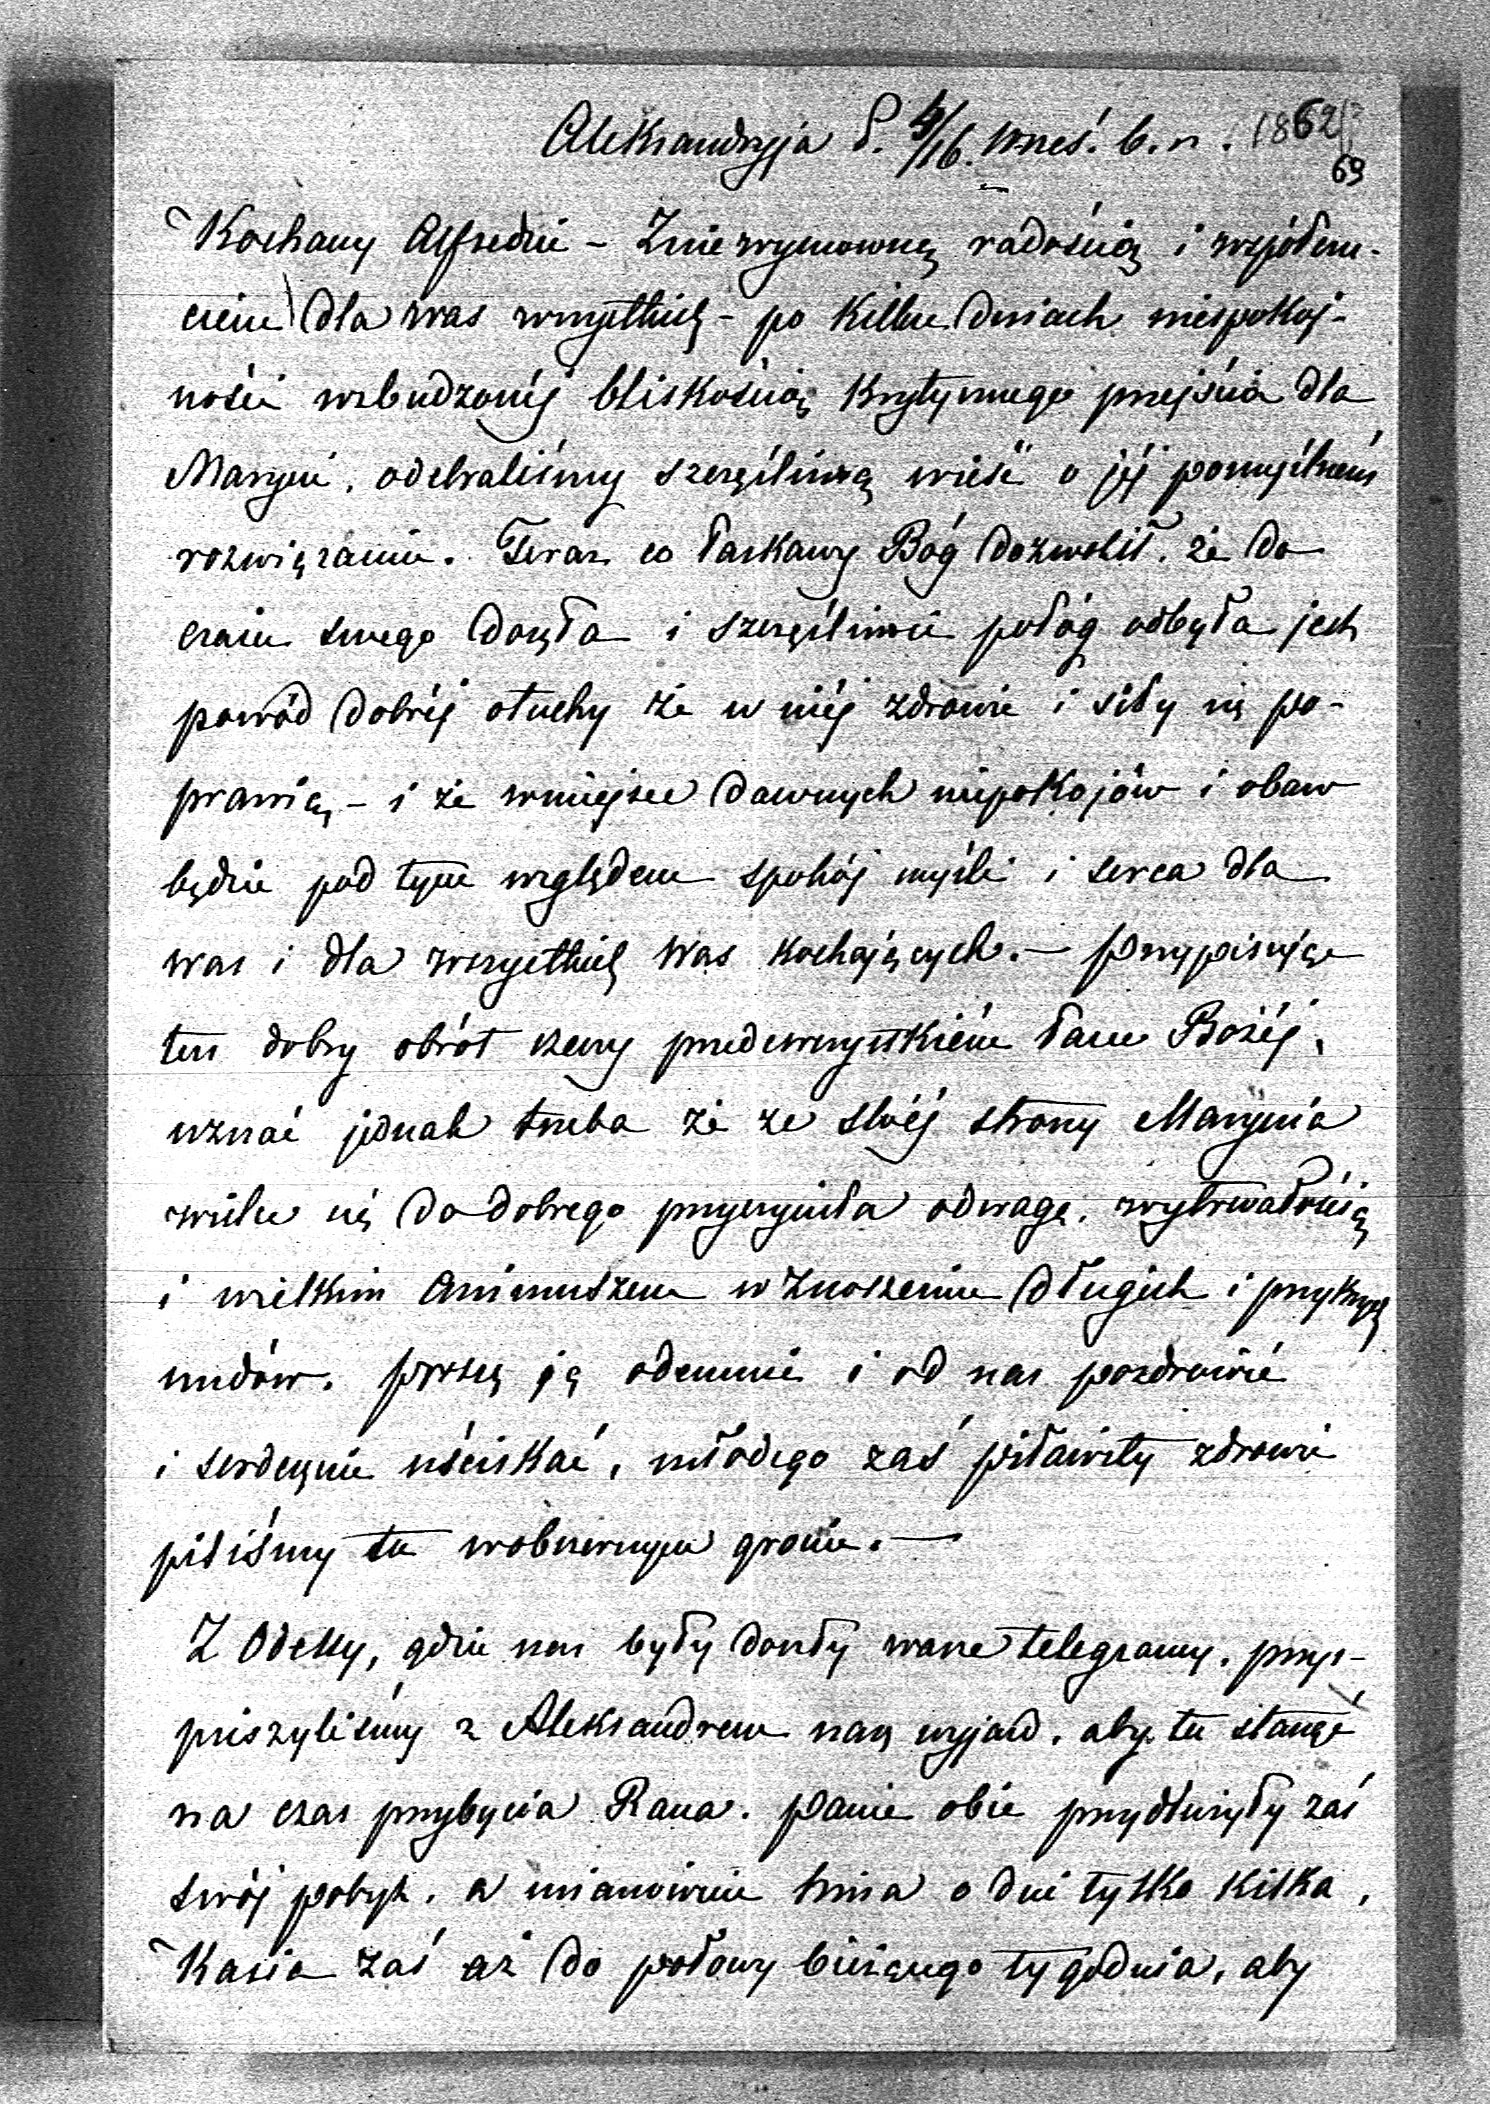 Aleksandryja d. 4/16. Wrześ. b. r. 1862
69
Kochany Alfredzie – Z niewymowną radością i współczu-
ciem dla was wszystkich – po kilku dniach niespokoj-
ności wzbudzonéj bliskością krytycznego przejścia dla
Maryni, odebraliśmy szczęśliwą wieść o jéj pomyślném
rozwiązaniu. Teraz co łaskawy Bóg dozwolił, że do
czasu swego doszła i szczęśliwie połóg odbyła jest
powód dobréj otuchy że w niéj zdrowie i siły się po-
prawią, – i że w miejsce dawnych niepokojów i obaw
będzie pod tym względem spokój myśli i serca dla
was i dla wszystkich Was kochających. – Przypisując
ten dobry obrót rzeczy przedewszystkiém łasce Bożéj,
uznać jednak trzeba że ze swéj strony Marynia
wiele się do dobrego przyczyniła odwagą, wytrwałością
i wielkim animuszem w znoszeniu długich i przykrych
nudów. Proszę ją odemnie i od nas pozdrowić
i serdecznie uściskać, młodego zaś pilawitę zdrowie
piliśmy tu w obszernym gronie. –
Z Odessy, gdzie nas były doszły wasze telegramy, przys-
pieszyliśmy z Aleksandrem nasz wyjazd, aby tu stanąć
na czas przybycia Rana. Panie obie przydłużyły zaś
swój pobyt, a mianowicie o dni tylko kilka,
Kasia zaś aż do połowy bieżącego tygodnia, aby